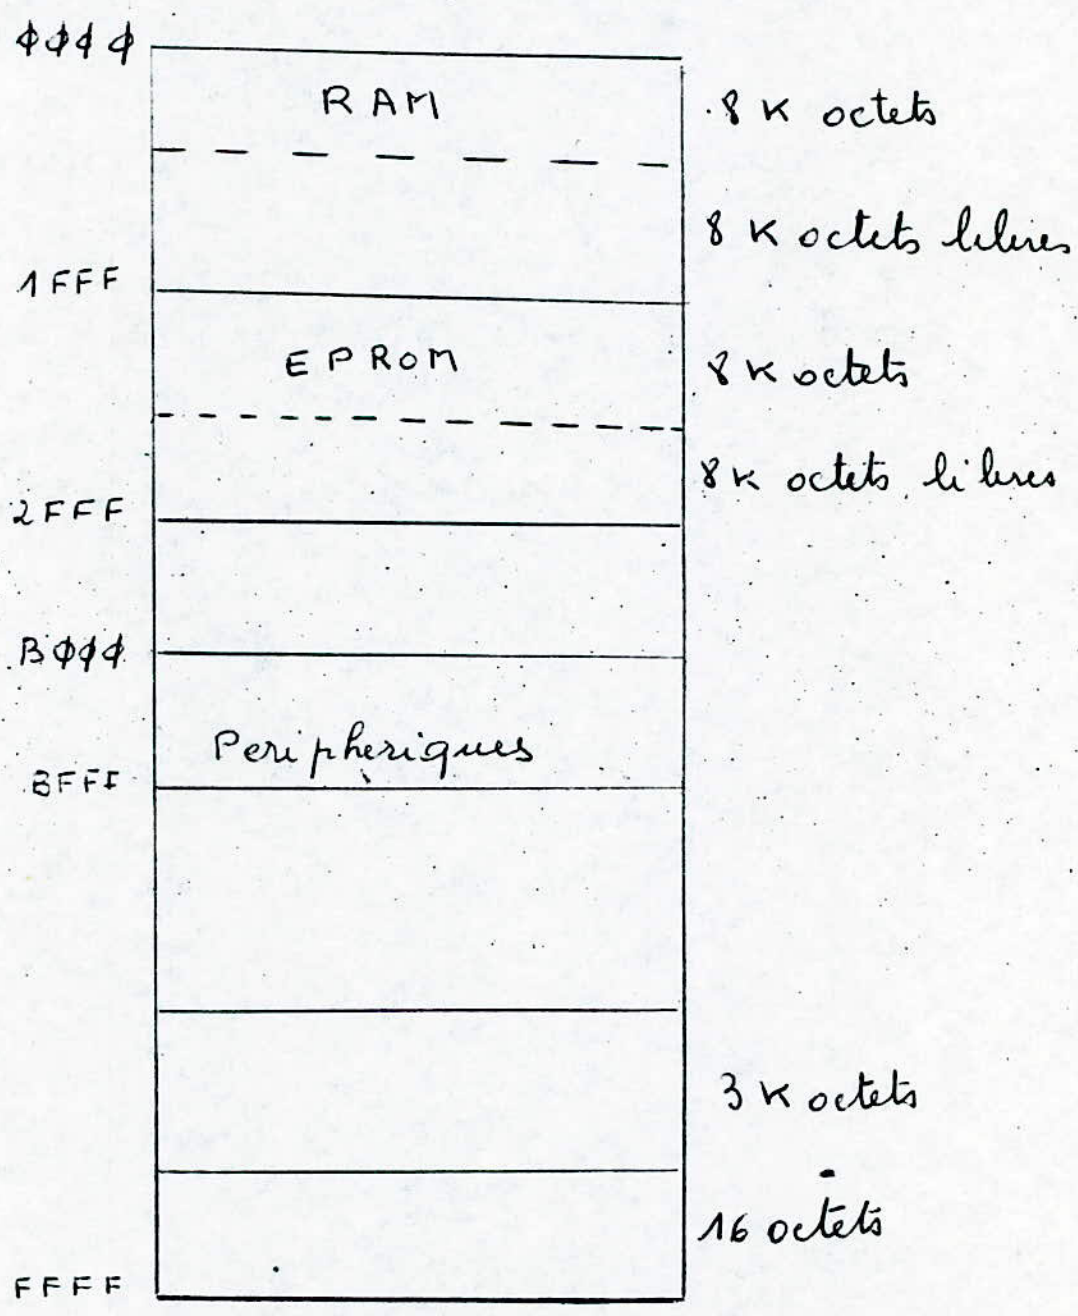 ϕϕϕϕ
RAM
8 K octets
8 K octets libres
1FFF
EPROM
8 K octets
8 K octets libres
2FFF
Bϕϕϕ
Peripheriques
BFFF
3 K octets
16 octets
FFFF